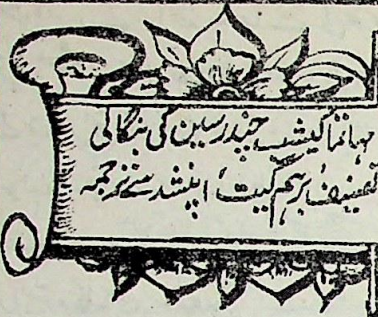 مہاتما کیشب چندر سین کی بنگالی
تصنیف برہم گیت اپنشد سے ترجمہ